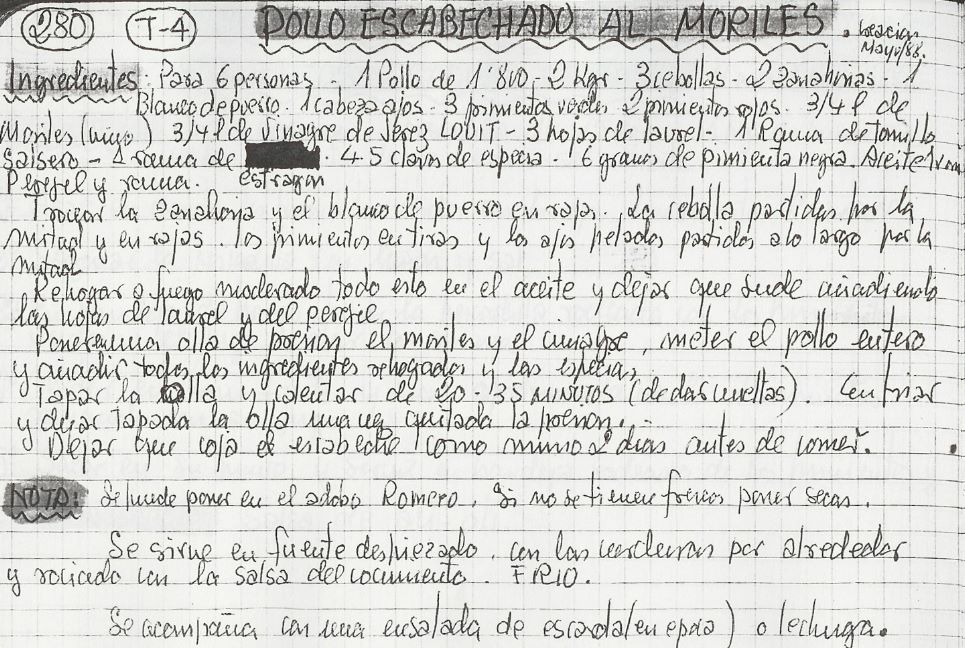 280 T-4 POLLO ESCABECHADO AL MORILES.
Mayo/88.
Ingredientes: Para 6 personas - 1 Pollo de 1'800 - 2 Kgr - 3 cebollas - 2 zanahorias - 1
Blanco de puerro - 1 cabeza ajos - 3 pimientos verdes 2 pimientos rojos. 3/4 l de
Moriles (vino) 3/4 l de Vinagre de Jerez LOUIT - 3 hojas de laurel - 1 Rama de tomillo
Salsero - 1 rama de estragon. 4-5 clavos de especia - 6 granos de pimienta negra. Aceite
Perejil y rama.
Trocear la zanahoria y el blanco de puerro en rajas. La cebolla partidas por la
mitad y en rajas. los pimientos en tiras y los ajos pelados partidos a lo largo por la
mitad
Rehogar a fuego moderado todo esto en el aceite y dejar que sude añadiendo
las hojas de laurel y del perejil
Poner en una olla de presion el moriles y el vinagre, meter el pollo entero
y añadir todos los ingredientes rehogados y las especias.
Tapar la olla y calentar de 20-35 MINUTOS (de das vueltas). Enfriar
y dejar tapada la olla una vez quitada la presion.
Dejar que coja el escabeche como minimo 2 dias antes de comer.
NOTA: Se puede poner en el adobo Romero. Si no se tienen frescos poner secas.
Se sirve en fuente deshuezado. con las verduras por alrededor
y rociado con la salsa del cocimiento. FRIO.
Se acompaña con una ensalada de escarola (en epoca) o lechuga.